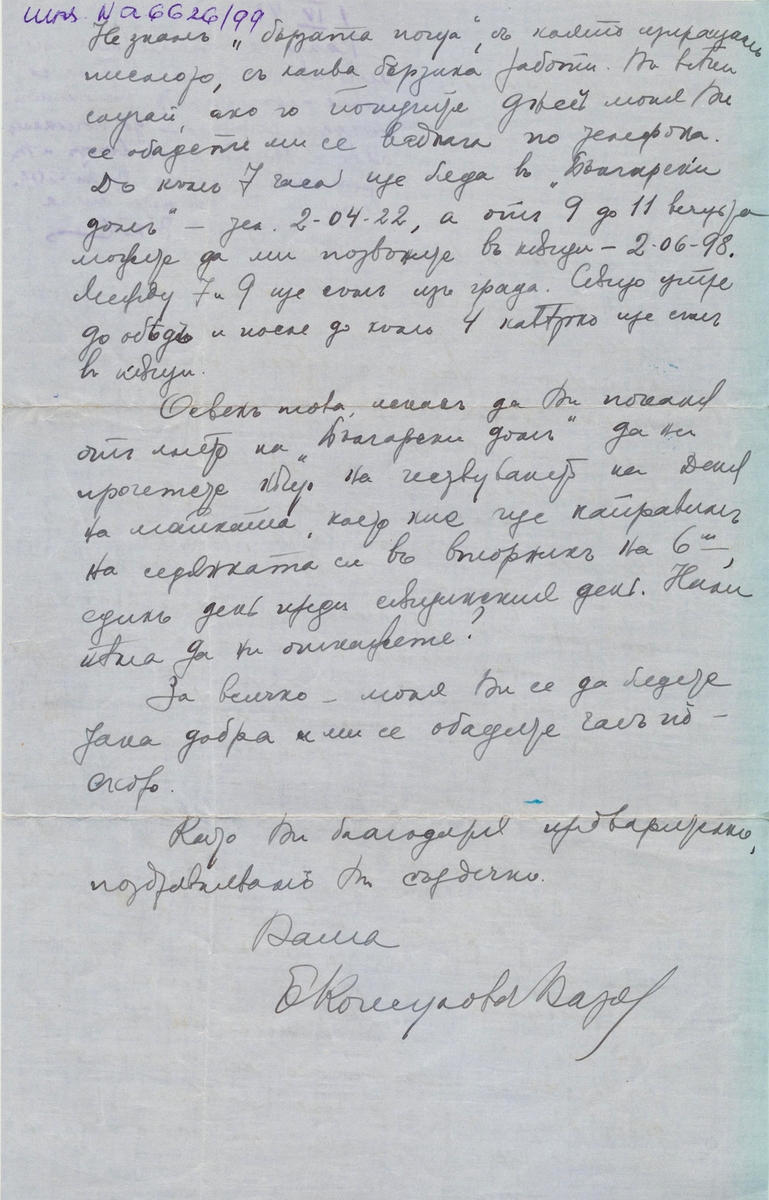 инв. № а 6626/99
Не знамъ „бързата поща“, съ която изпращамъ
писмото, съ каква бързина работи. Въ всѣки
случай, ако го получите днесъ моля Ви
се обадете ми се веднага по телефона.
До къмъ 7 часа ще бѫда въ „Български
домъ“ – тел. 2-04-22, а отъ 9 до 11 вечерьта
можете да ми позвоните въ кѫщи – 2-06-98.
Между 7 и 9 ще съмъ изъ града. Също утре
до обѣдъ и после до къмъ 4 ще съмъ
въ кѫщи.
Освенъ това, искамъ да Ви поканя
отъ името на „Български домъ“ да ни
прочетете нѣщо на честvуването на Деня
на майката, което ние ще направимъ
на седянката си въ вторникъ на 6ти,
единъ день преди същинския день. Нали
нѣма да ни откажете?
За всичко – моля Ви се да бѫдете
така добра и ми се обадите часъ по-
скоро.
Като Ви благодаря предварително,
поздравлявамъ Ви сърдечно.
Ваша